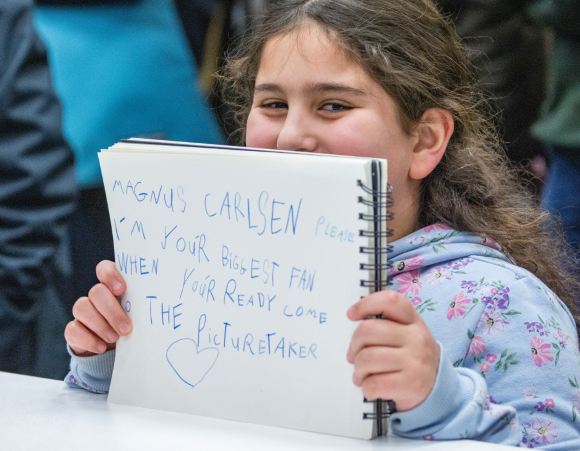 MAGNUS CARLSEN PLEASE
I'M YOUR BIGGEST FAN
WHEN YOUR READY COME
TO THE PICTURETAKER